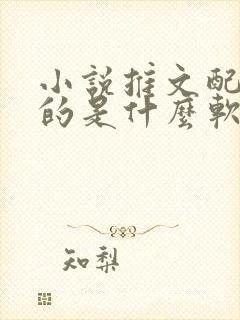 小說推文配
的是什麼軟
知梨